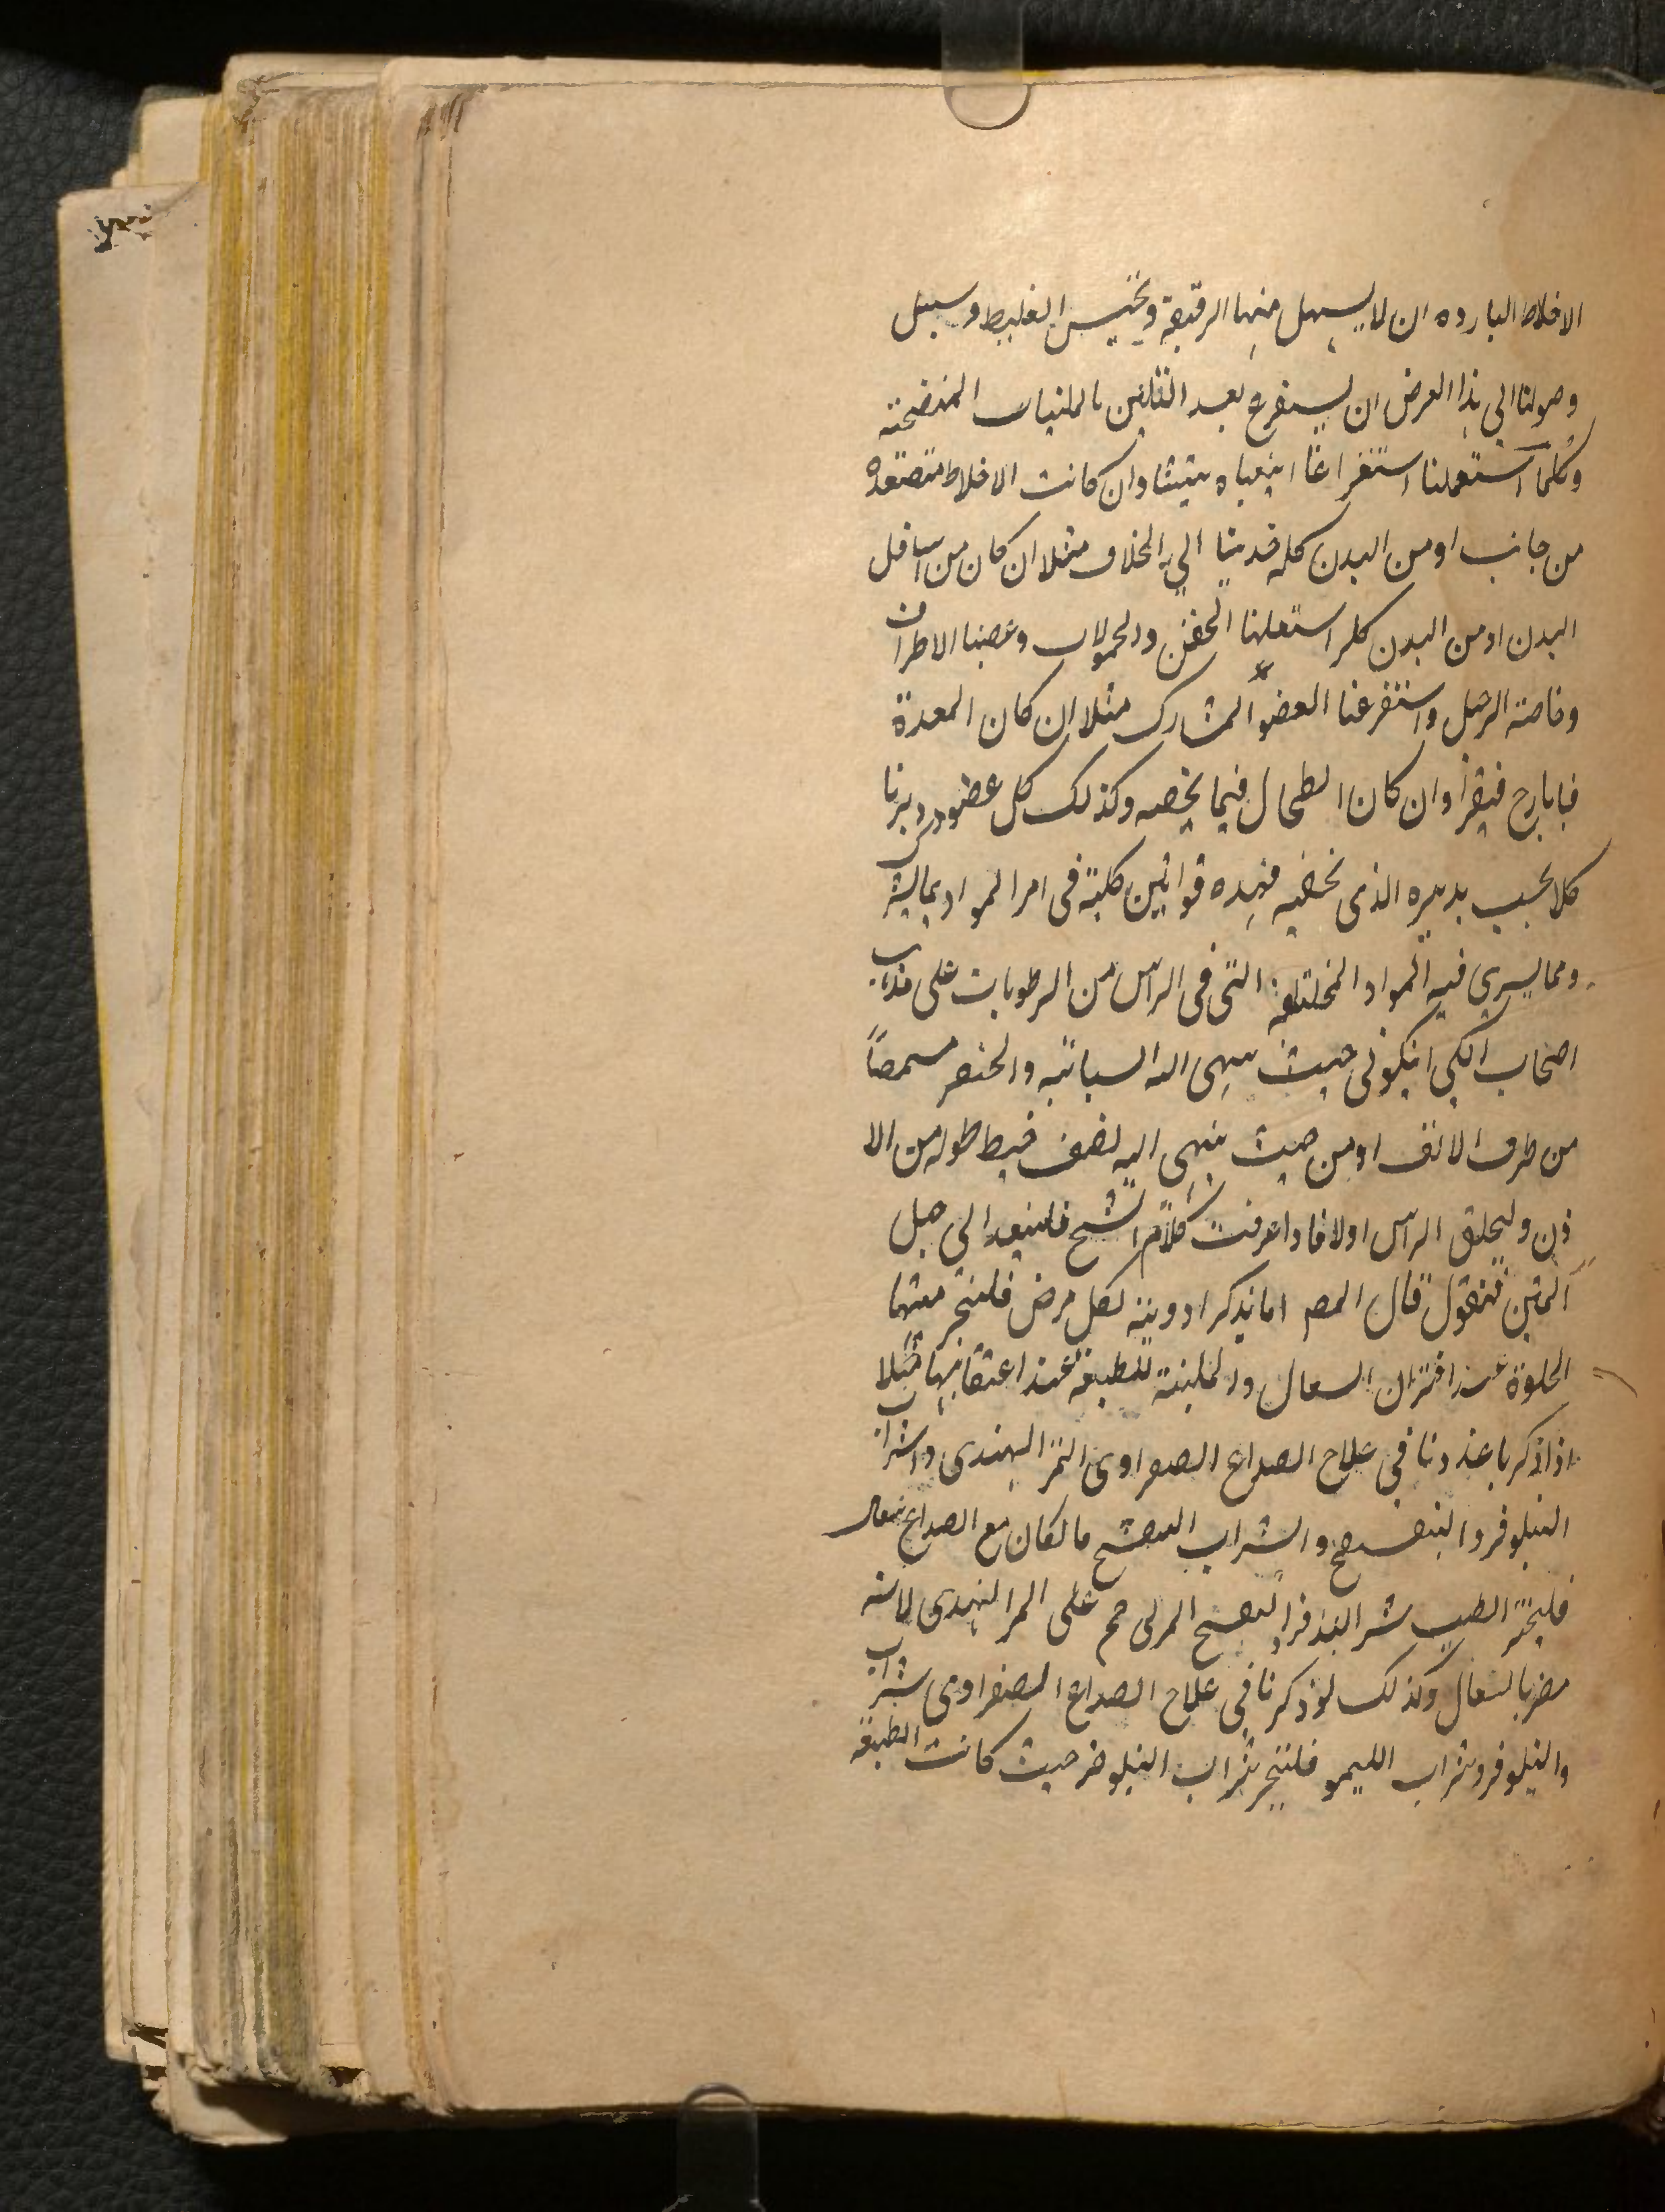 الاخلاط البارده ان لا يسهل منها الرقيقة ويحتبس الغليظ وسبيل
وصولنا الى هذا الغرض ان يستفرغ بعد التليين بالملينات المنضجة
وكلما استعملنا استفراغا وان كانت الاخلاط متصعده
من جانب او من البدن كله الى الخلاف مثلا ان كان من اسافل
البدن او من البدن كله استعملنا الحقن والحمولات وعصبنا الاطراف
وخاصة الرجل واستفرغنا العضو المشارك مثلا ان كان المعدة
فبايارج فيقرا وان كان الطحال فيما يخصه وكذلك كل عضو ودبرنا
كلا بحسب تدبيره الذى يخصه فهذه قوانين كلية فى امر المواد
ومما يسرى فيه المواد المختلفة التى فى الراس من الرطوبات على مذاهب
اصحاب الكى ان يكوى حيث ينتهى اليه السبابة والخنصر
من طرف الانف او من حيث ينتهى اليه نصف خيط طوله من الا
ذن وليحلق الراس اولا فاذا عرفت كلام الشيخ فلنعد الى حل
المتن فنقول قال المص اما نذكر ادوية لكل مرض فلنختر منها
الحلوة عند اقتران السعال والملينة للطبيعة عند اعتقالها مثلا
اذا ذكرنا عندنا فى علاج الصداع الصفراوى التمر الهندى واشراب
النيلوفر والبنفسج والشراب البنفسج فالكان مع الصداع سعال
فليختر الطبيب شراب النيلوفر البنفسج المربى على التمر الهندى لانه
مضر بالسعال وكذلك لو ذكرنا فى علاج الصداع الصفراوى شراب
والنيلوفر وشراب الليمو فلنختر شراب النيلوفر حيث كانت الطبيعة